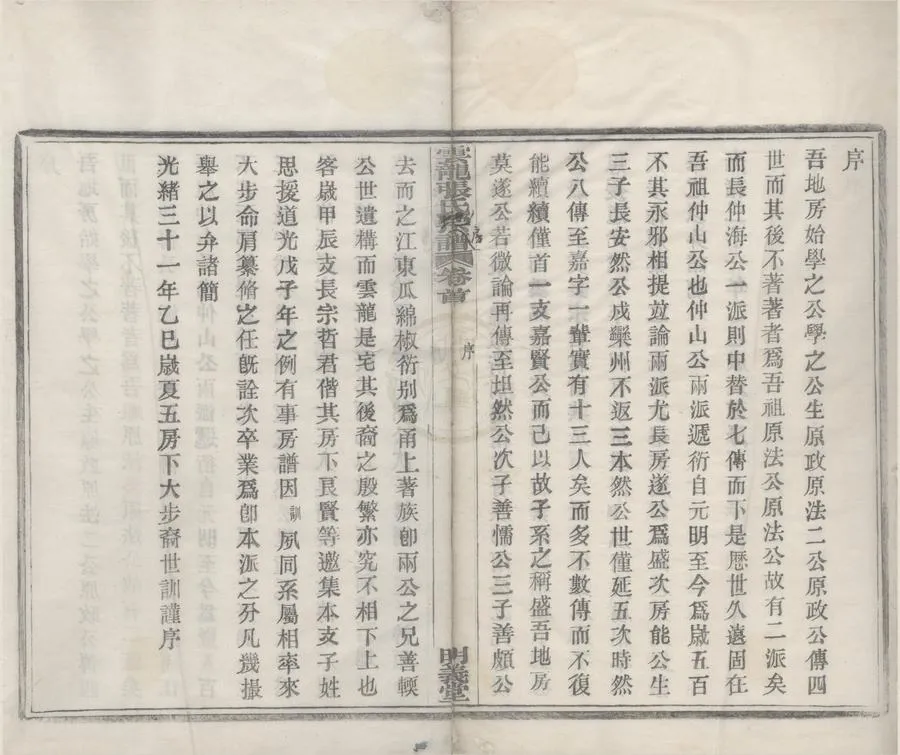 序
吾地房始學之公學之公生原政原法二公原政公傳四
世而其後不著著者爲吾祖原法公原法公故有二派矣
而長仲海公一派則中替於七傳而下是歷世久遠固在
吾祖仲山公也仲山公兩派遞衍自元明至今爲歲五百
不其永邪相提竝論兩派尤長房遂公爲盛次房能公生
三子長安然公戍欒州不返三本然公世僅延五次時然
公八傳至嘉字一輩實有十三人矣而多不數傳而不復
能續續僅首一支嘉賢公而已以故子系之稱盛吾地房
莫遂公若微論再傳至坦然公次子善懦公三子善頗公
雲龍張氏地房譜 卷首
序
明義堂
去而之江東瓜綿椒衍别爲甬上著族卽兩公之兄善輭
公世遺構而雲龍是宅其後裔之殷繁亦究不相下上也
客歲甲辰支長宗哲君偕其房下良賢等邀集本支子姓
思援道光戊子年之例有事房譜因訓夙同系屬相率來
大步命肩纂脩之任旣詮次卒業爲卽本派之分凡幾撮
舉之以弁諸簡
光緒三十一年乙巳歲夏五房下大步裔世訓謹序